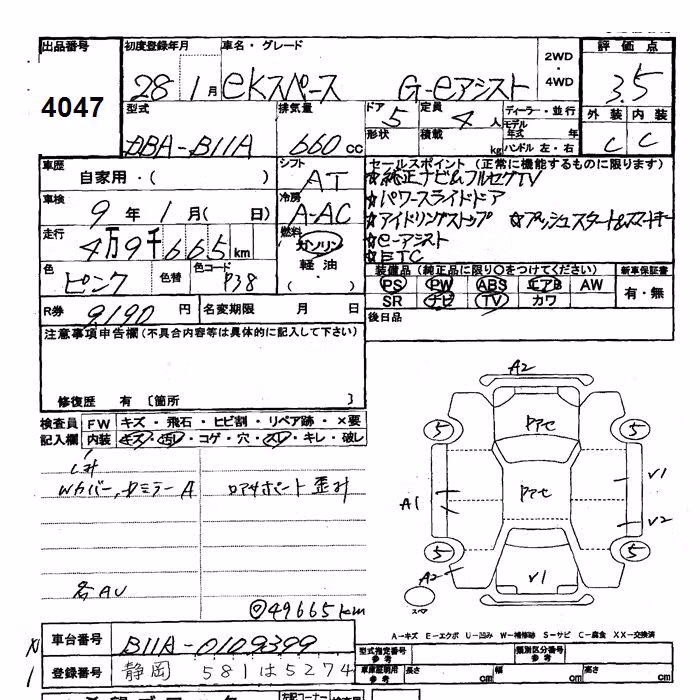 出品番号 4047
初度登録年月 28 1月
車名・グレード eKスペース G-eアシスト
2WD・4WD
評価点 3.5
外装 C 内装 C
型式 DBA-B11A
排気量 660cc
ドア 5 形状
定員 4人 積載 kg
ディーラー・並行
モデル年式 年
ハンドル 左・右
車歴 自家用・( )
シフト AT
車検 9年1月( 日)
冷房 A-AC
走行 4万9千665km
燃料 ガソリン 軽油 ・( )
色 ピンク 色替 色コード P38
R券 9190円 名変期限 月 日
セールスポイント (正常に機能するものに限ります)
☆純正ナビ&フルセグTV
☆パワースライドドア
☆アイドリングストップ ☆プッシュスタート&スマートキー
☆e-アシスト
☆ETC
装備品(純正品に限り○をつけてください) 新車保証書
PS PW ABS エアB AW 有・無
SR ナビ TV カワ
後日品
注意事項申告欄(不具合内容等は具体的に記入して下さい)
修復歴 有 〔箇所 〕
検査員記入欄 FW キズ・飛石・ヒビ割・リペア跡・×要
内装 キズ・汚レ・コゲ・穴・スレ・キレ・破レ
Wカバー,ドミラーA ロアサポート歪み
名AU
◎49665km
A2
5 5
A1 V1
V2
5 5
A2 V1
スペア
A-キズ E-エクボ U-凹み W-補修跡 S-サビ C-腐食 XX-交換済
車台番号 B11A-0109399
登録番号 静岡 581は5274
型式指定番号 参考 類別区分番号 参考
車庫証明用 参考 長さ cm 幅 cm 高さ cm